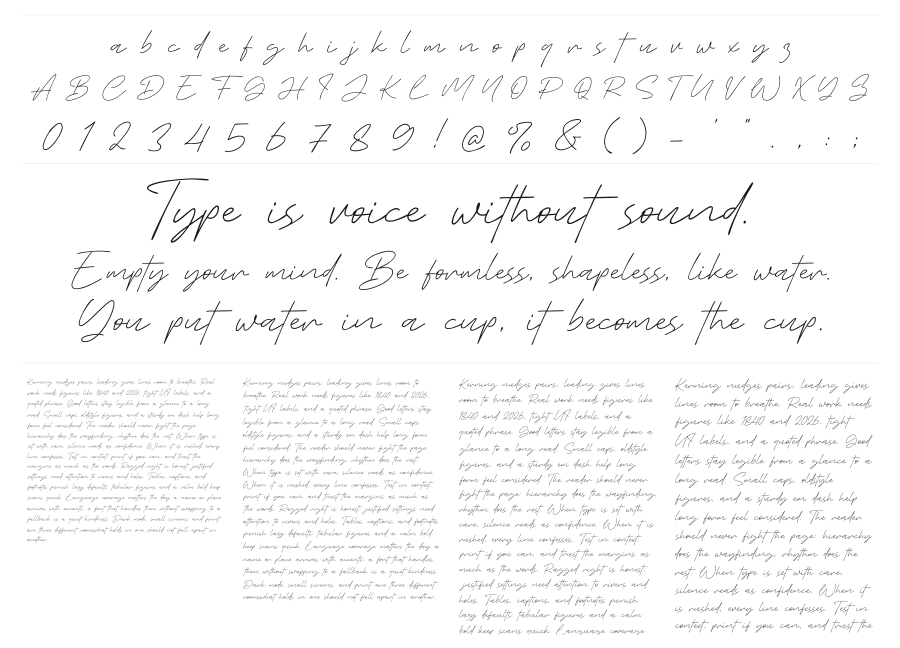 a b c d e f g h i j k l m n o p q r s t u v w x y z
A B C D E F G H I J K L M N O P Q R S T U V W X Y Z
0 1 2 3 4 5 6 7 8 9 ! @ % & ( ) - ' " . , : ;
Type is voice without sound.
Empty your mind. Be formless, shapeless, like water.
You put water in a cup, it becomes the cup.
Kerning nudges pairs, leading gives lines room to breathe. Real
work needs figures like 1840 and 2026, tight UI labels, and a
quoted phrase. Good letters stay legible from a glance to a long
read. Small caps, oldstyle figures, and a sturdy en dash help long
form feel considered. The reader should never fight the page
hierarchy does the wayfinding, rhythm does the rest. When type is
set with care, silence reads as confidence. When it is rushed, every
line confesses. Test in context, print if you can, and trust the
margins as much as the words. Ragged right is honest, justified
settings need attention to rivers and holes. Tables, captions, and
footnotes punish lazy defaults, tabular figures and a calm bold keep
scans quick. Language coverage matters the day a name or place
arrives with accents, a font that handles them without swapping to a
fallback is a quiet kindness. Dark mode, small screens, and print
are three different rooms what holds in one should not fall apart in
another.
Kerning nudges pairs, leading gives lines room to
breathe. Real work needs figures like 1840 and 2026,
tight UI labels, and a quoted phrase. Good letters stay
legible from a glance to a long read. Small caps,
oldstyle figures, and a sturdy en dash help long form
feel considered. The reader should never fight the page
hierarchy does the wayfinding, rhythm does the rest.
When type is set with care, silence reads as confidence.
When it is rushed, every line confesses. Test in context,
print if you can, and trust the margins as much as
the words. Ragged right is honest, justified settings need
attention to rivers and holes. Tables, captions, and footnotes
punish lazy defaults, tabular figures and a calm bold
keep scans quick. Language coverage matters the day a
name or place arrives with accents, a font that handles
them without swapping to a fallback is a quiet kindness.
Dark mode, small screens, and print are three different
rooms what holds in one should not fall apart in another.
Kerning nudges pairs, leading gives lines
room to breathe. Real work needs figures like
1840 and 2026, tight UI labels, and a
quoted phrase. Good letters stay legible from a
glance to a long read. Small caps, oldstyle
figures, and a sturdy en dash help long
form feel considered. The reader should never
fight the page hierarchy does the wayfinding,
rhythm does the rest. When type is set with
care, silence reads as confidence. When it is
rushed, every line confesses. Test in context,
print if you can, and trust the margins as
much as the words. Ragged right is honest,
justified settings need attention to rivers and
holes. Tables, captions, and footnotes punish
lazy defaults, tabular figures and a calm
bold keep scans quick. Language coverage
Kerning nudges pairs, leading gives
lines room to breathe. Real work needs
figures like 1840 and 2026, tight
UI labels, and a quoted phrase. Good
letters stay legible from a glance to a
long read. Small caps, oldstyle
figures, and a sturdy en dash help
long form feel considered. The reader
should never fight the page hierarchy
does the wayfinding, rhythm does the
rest. When type is set with care,
silence reads as confidence. When it
is rushed, every line confesses. Test in
context, print if you can, and trust the